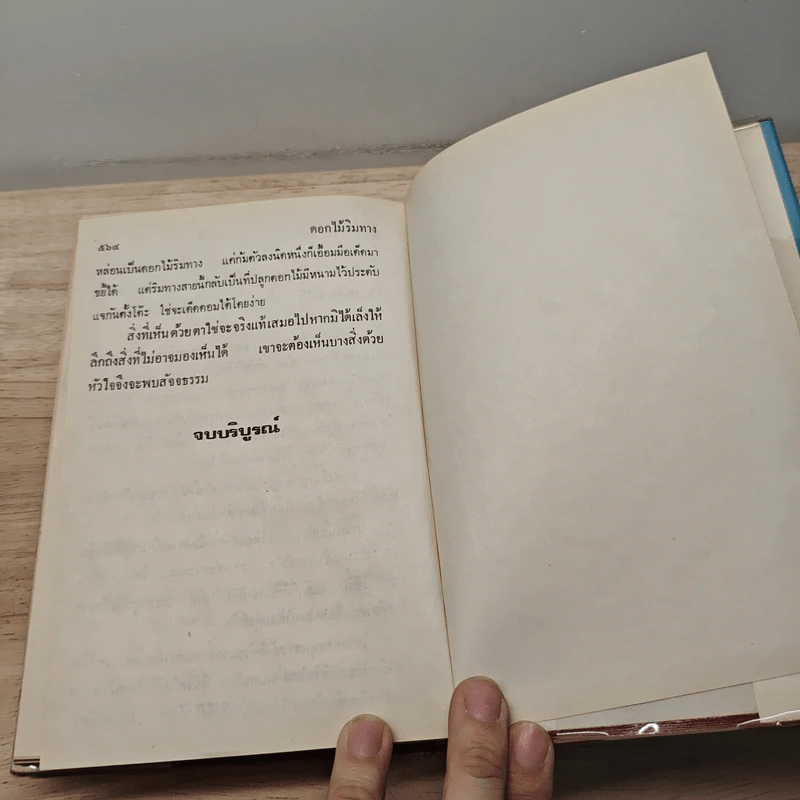 ๕๖๔
ดอกไม้ริมทาง
หล่อนเป็นดอกไม้ริมทาง แค่ก้มตัวลงนิดหนึ่งก็เอื้อมมือเด็ดมา
ขยี้ได้ แต่ริมทางสายนี้กลับเป็นที่ปลูกดอกไม้มีหนามไว้ประดับ
แจกันตั้งโต๊ะ ใช่จะเด็ดดอมได้โดยง่าย
สิ่งที่เห็นด้วยตาใช่จะจริงแท้เสมอไปหากมิได้เล็งให้
ลึกถึงสิ่งที่ไม่อาจมองเห็นได้ เขาจะต้องเห็นบางสิ่งด้วย
หัวใจจึงจะพบสัจจธรรม
จบบริบูรณ์